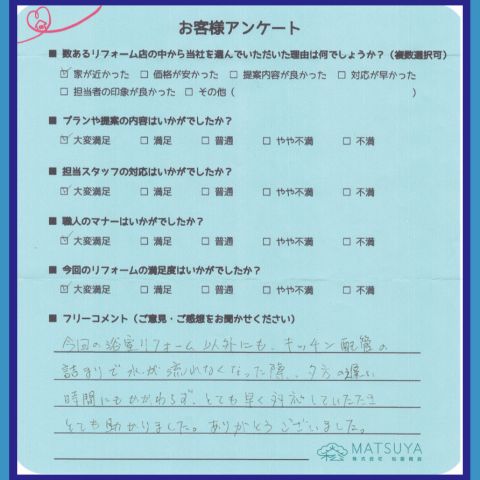 お客様アンケート
■ 数あるリフォーム店の中から当社を選んでいただいた理由は何でしょうか？（複数選択可）
☑ 家が近かった □ 価格が安かった □ 提案内容が良かった □ 対応が早かった
□ 担当者の印象が良かった □ その他（ ）
■ プランや提案の内容はいかがでしたか？
☑ 大変満足 □ 満足 □ 普通 □ やや不満 □ 不満
■ 担当スタッフの対応はいかがでしたか？
☑ 大変満足 □ 満足 □ 普通 □ やや不満 □ 不満
■ 職人のマナーはいかがでしたか？
☑ 大変満足 □ 満足 □ 普通 □ やや不満 □ 不満
■ 今回のリフォームの満足度はいかがでしたか？
☑ 大変満足 □ 満足 □ 普通 □ やや不満 □ 不満
■ フリーコメント（ご意見・ご感想をお聞かせください）
今回の浴室リフォーム以外にも、キッチン配管の
詰まりで水が流れなくなった際、夕方の遅い
時間にもかかわらず、とても早く対応していただき
とても助かりました。ありがとうございました。
MATSUYA
株式会社 松屋商店